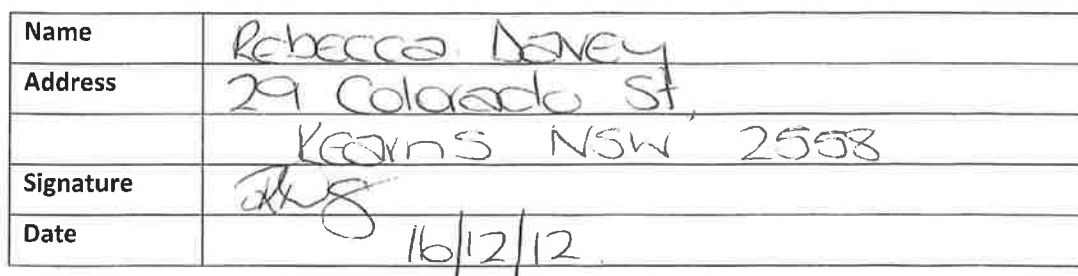 Name Rebecca Davey
Address 29 Colorado St,
Kearns NSW 2558
Signature
Date 16/12/12